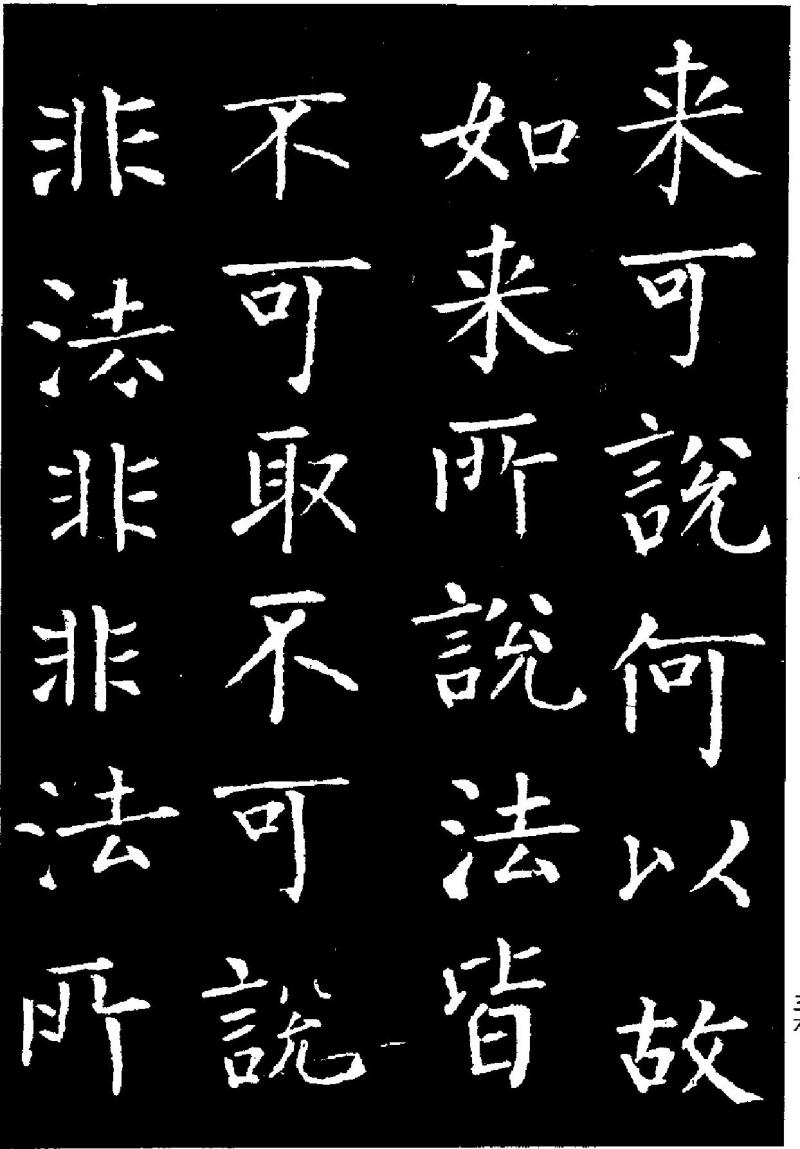 来可說何以故
如来所說法皆
不可取不可說
非法非非法所